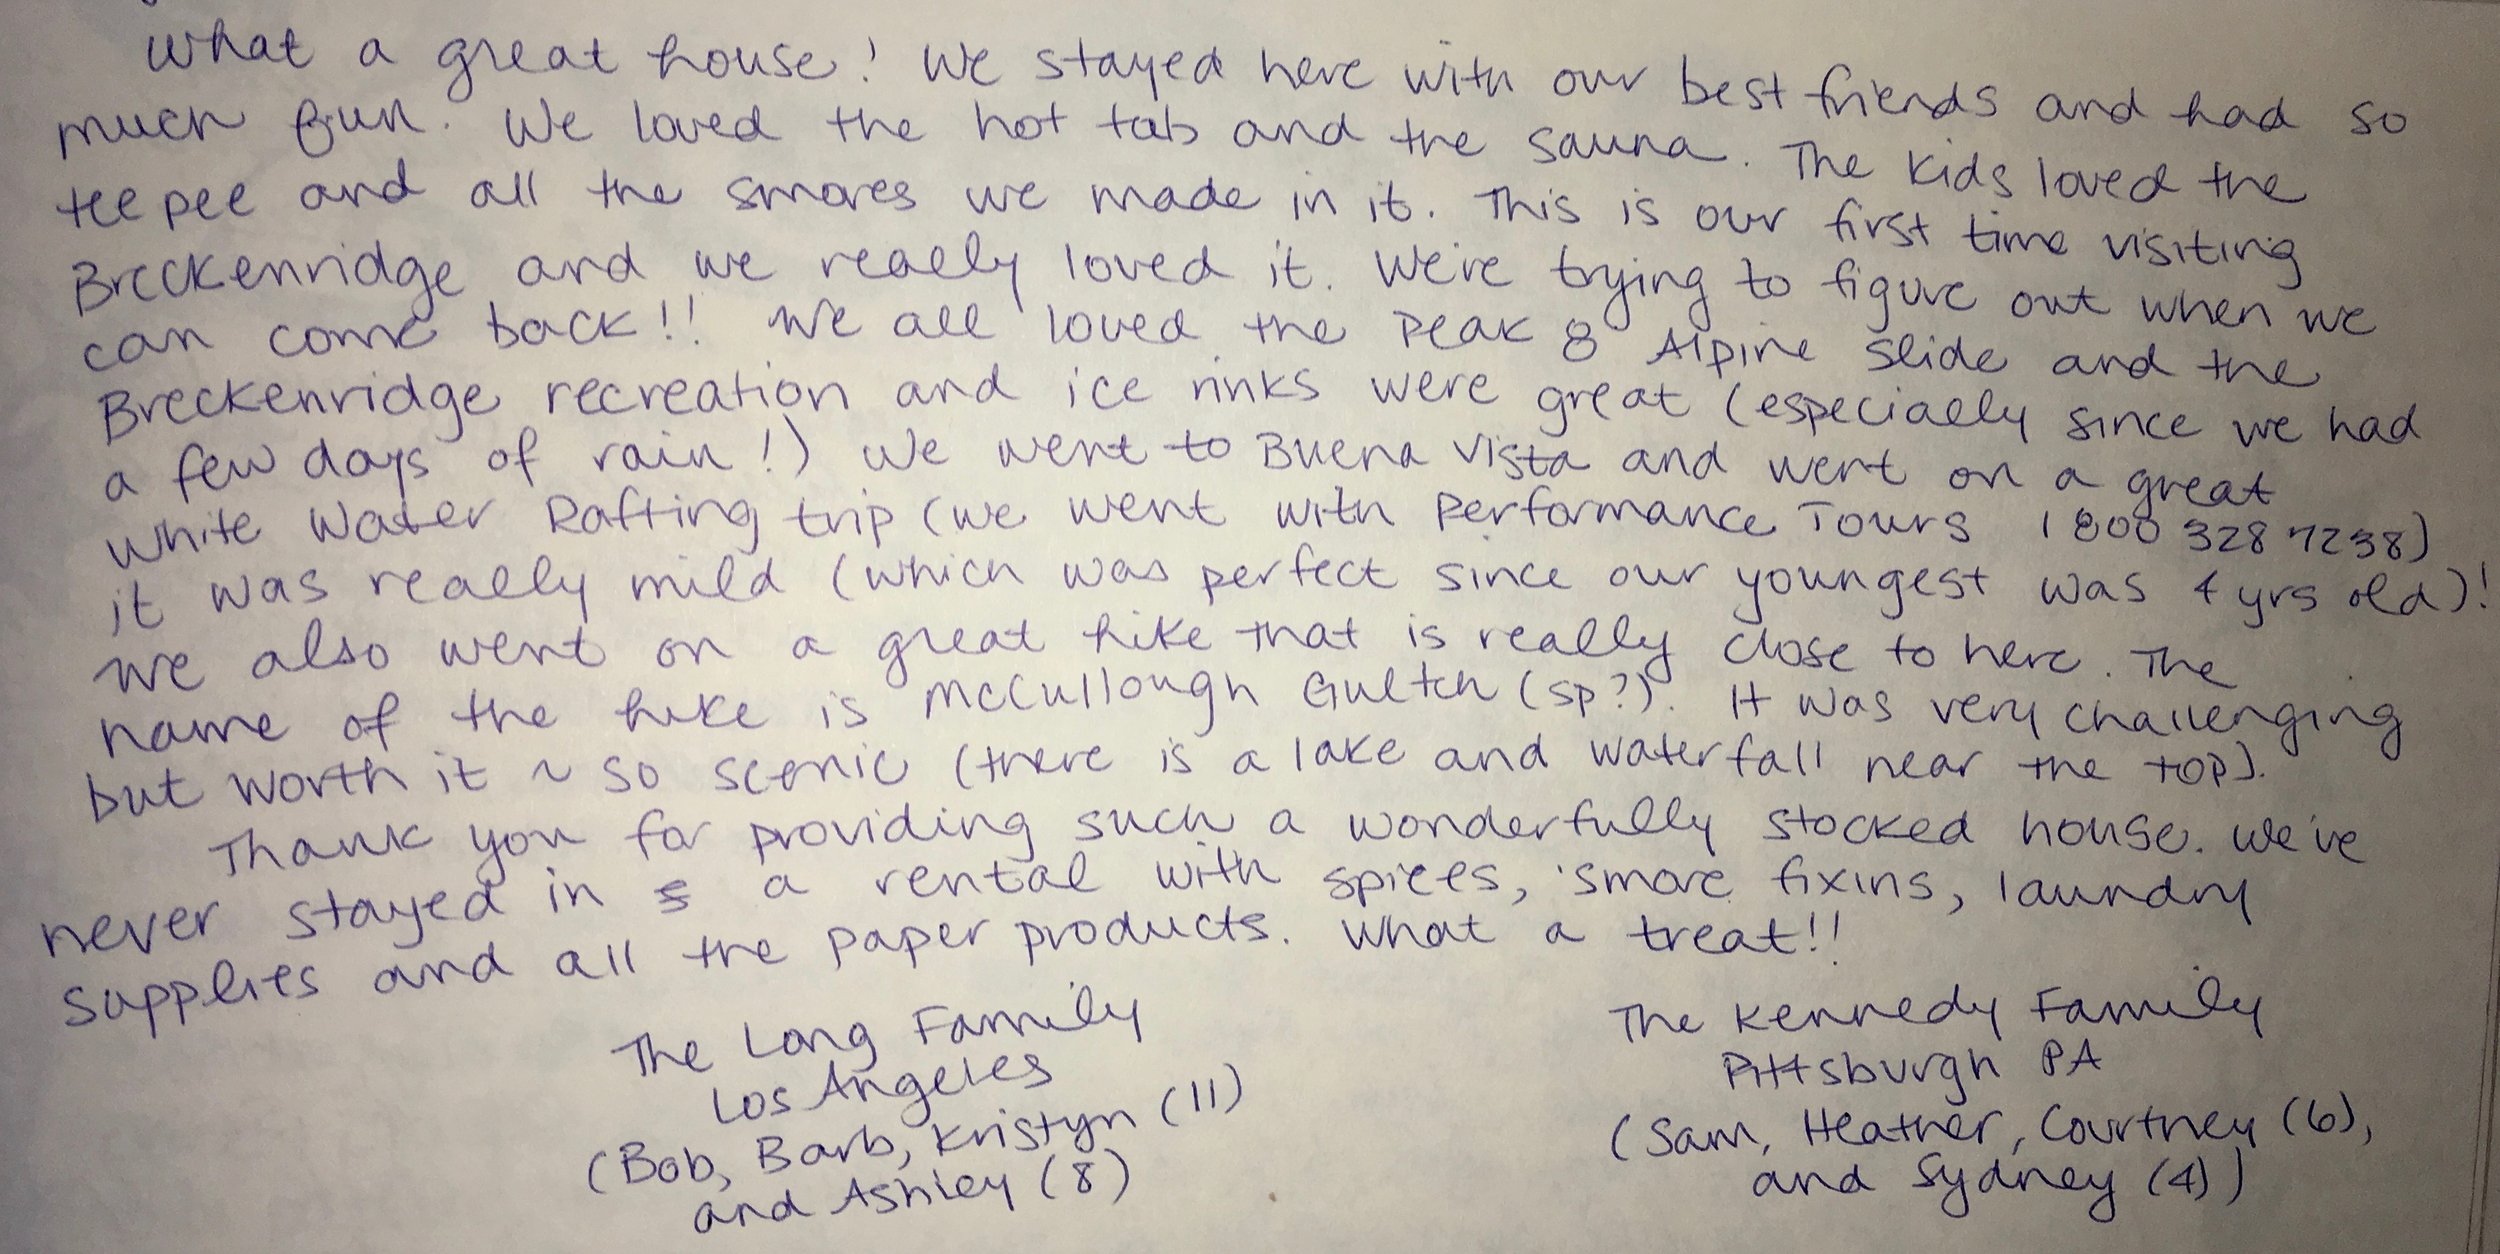 What a great house! We stayed here with our best friends and had so
much fun. We loved the hot tab and the sauna. The kids loved the
teepee and all the smores we made in it. This is our first time visiting
Breckenridge and we really loved it. We're trying to figure out when we
can come back!! We all loved the Peak 8 Alpine slide and the
Breckenridge recreation and ice rinks were great (especially since we had
a few days of rain!) We went to Buena Vista and went on a great
White Water Rafting trip (we went with Performance Tours 1 800 328 7238)
it was really mild (which was perfect since our youngest was 4 yrs old)!
We also went on a great hike that is really close to here. The
name of the hike is McCullough Gultch (sp?). It was very challenging
but worth it ~ so scenic (there is a lake and waterfall near the top).
Thank you for providing such a wonderfully stocked house. We've
never stayed in a rental with spices, 'smore fixins, laundry
supplies and all the paper products. What a treat!!
The Long Family
Los Angeles
(Bob, Barb, Kristyn (11)
and Ashley (8)
The Kennedy Family
Pittsburgh PA
(Sam, Heather, Courtney (6),
and Sydney (4))